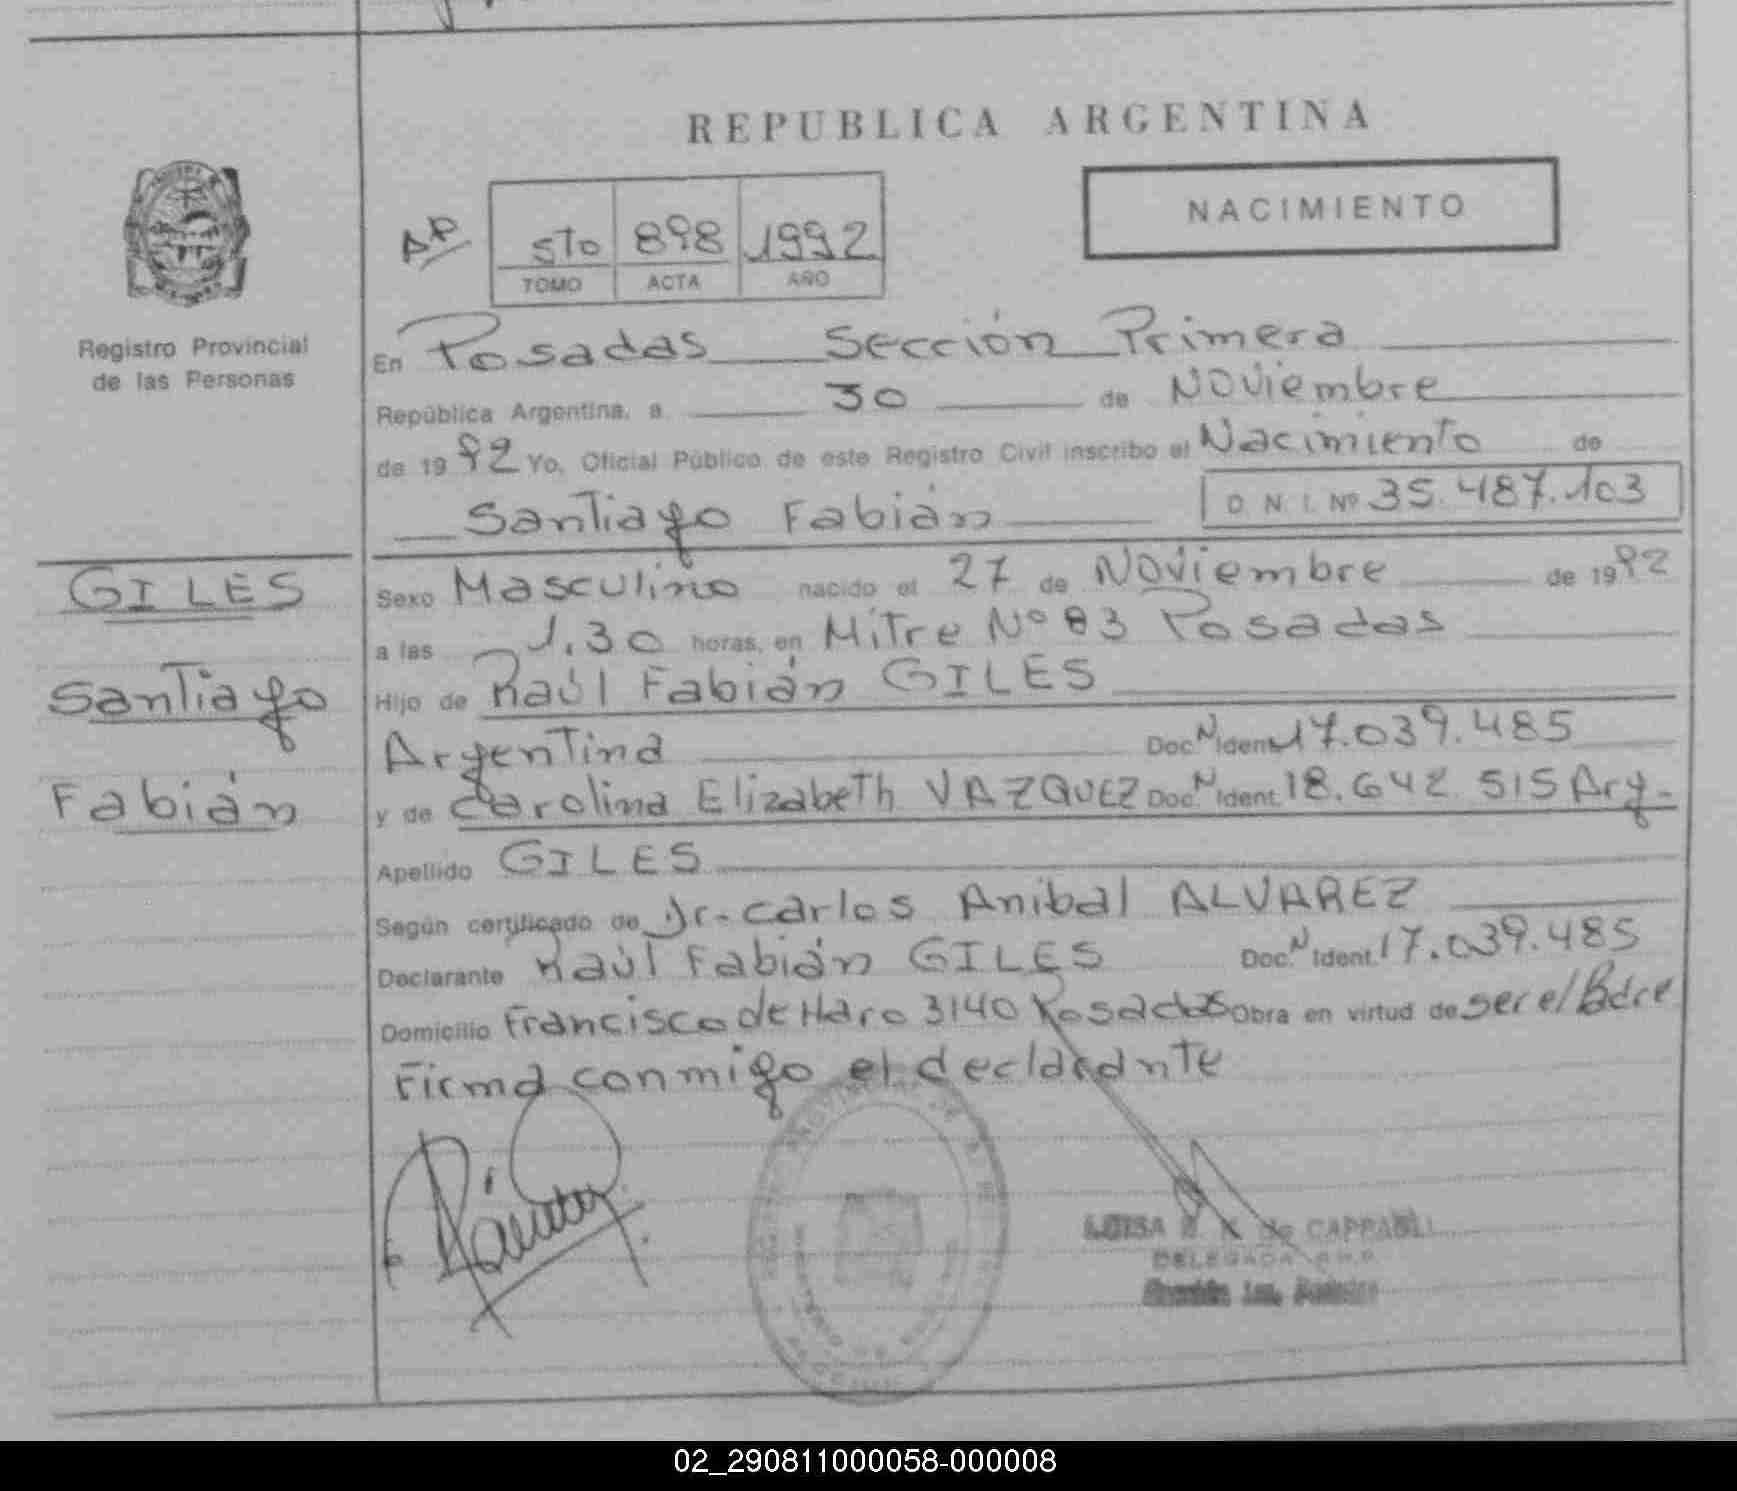 REPUBLICA ARGENTINA
NACIMIENTO
AP
5To 898 1992
TOMO ACTA AÑO
Registro Provincial
de las Personas
En Posadas Sección Primera
República Argentina, a 30 de Noviembre
de 1992 Yo, Oficial Público de este Registro Civil inscribo el Nacimiento de
Santiago Fabián D. N. I. Nº 35.487.103
GILES
Santiago
Fabián
Sexo Masculino nacido el 27 de Noviembre de 1992
a las 1,30 horas, en Mitre Nº 83 Posadas
Hijo de Raúl Fabián GILES
Argentina Doc. N Ident. 17.039.485
y de Carolina Elizabeth VAZQUEZ Doc. N Ident. 18.642.515 Arg.
Apellido GILES
Según certificado de Dr. Carlos Anibal ALVAREZ
Declarante Raúl Fabián GILES Doc. N Ident. 17.039.485
Domicilio Francisco de Haro 3140 Posadas Obra en virtud de ser el Padre
Firma conmigo el declarante
LUISA de CAPPABLI
DELEGADA
02_290811000058-000008